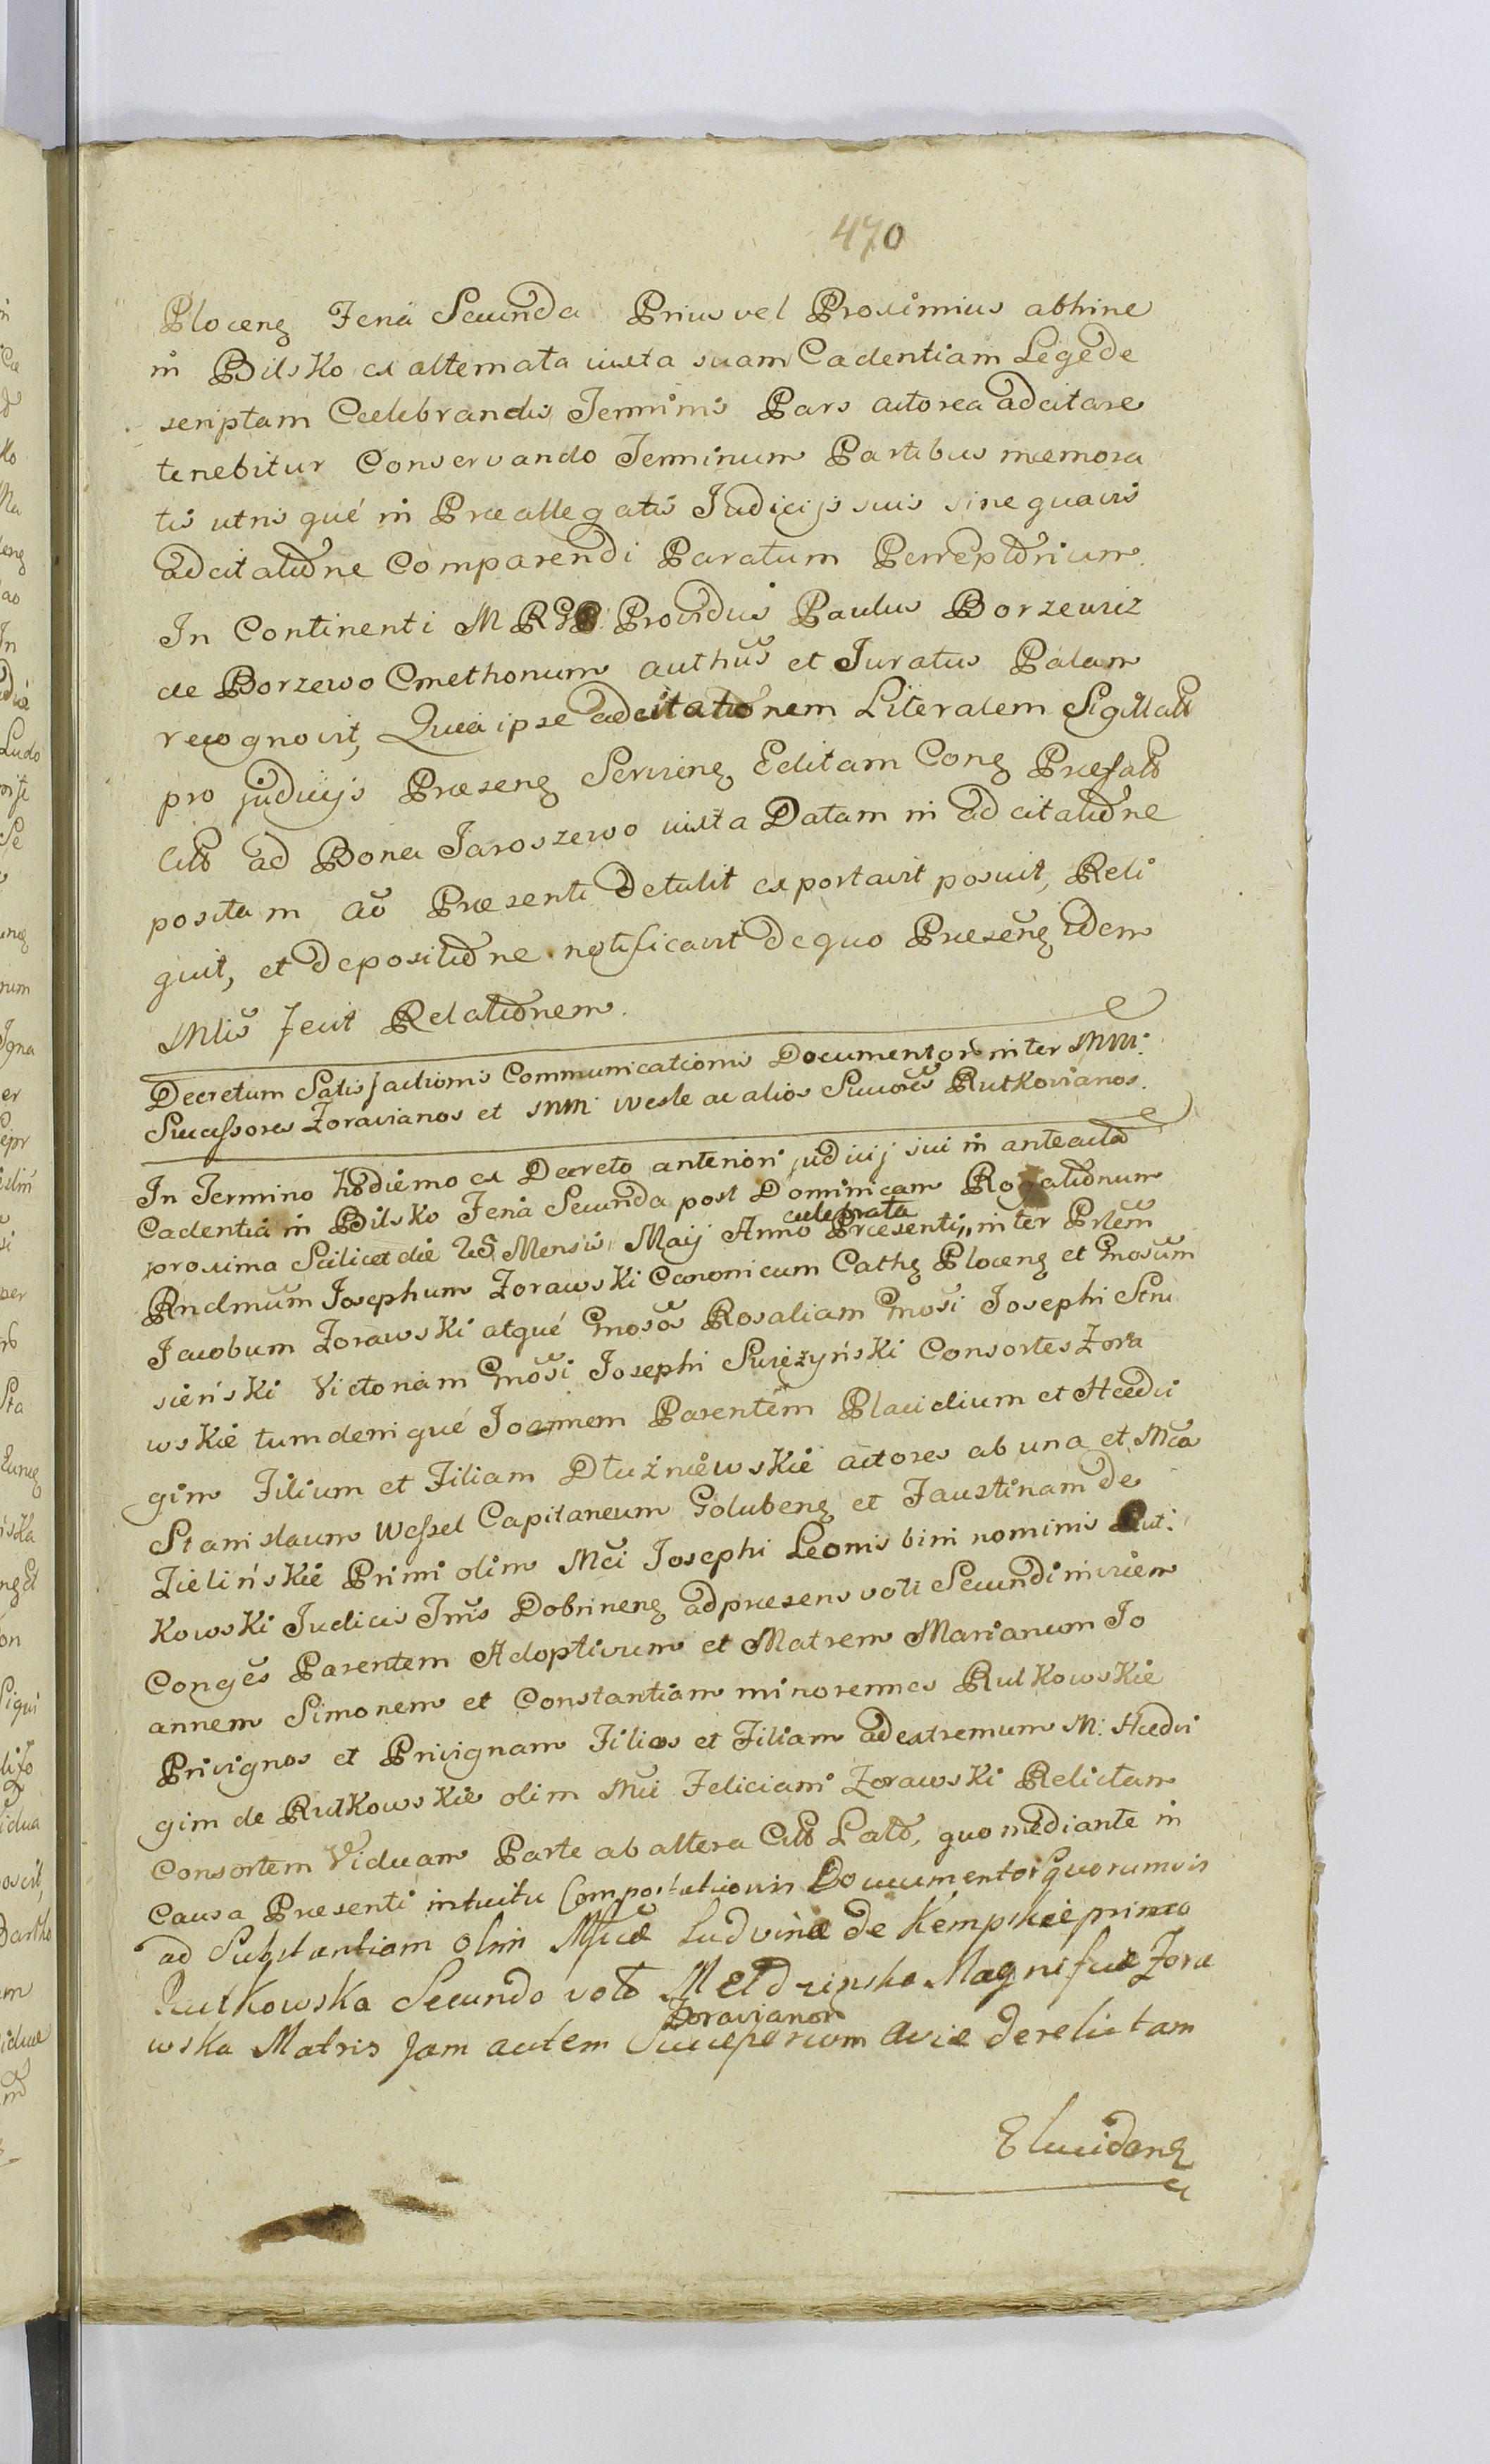 470
Plocens Feria Secunda Prius vel Proximius abhinc
in Bilsko ex alternata iuxta suam Cadentiam Lege de
scriptam Caelebrandis Terminis Pars actorea adcitare
tenebitur Conservando Terminum Partibus memora
tis utris qué in Praeallegatis Judicijs suis sine quavis
adcitatione Comparendi Paratum Peremptorium.
In Continenti M RGP Providus Paulus Borzewicz
de Borzewo Cmethonum authus et Juratus Palam
recognovit, Quia ipse adcitationem Literalem Sigillatt
pro judicijs Praesens Serviens Editam Cong Praefatt
Citt ad Bona Jaroszewo iuxta Datam in adcitatione
positam ao Praesenti Detulit exportavit posuit, Reli
quit, et depositione notificavit de quo Praesens idem
Mlis fecit Relationem.
Decretum Satisfactionis Communicationis Documentor inter MM:
Successores Zoravianos et MM: Wesle ac alios Succores Rutkovianos.
In Termino hodierno ex Decreto anteriori judicij sui in anteacta
Cadentia in Bilsko Feria Secunda post Dominicam Rogationum
proxima Scilicet die 25 Mensis Maij Anno Praesenti celebrata inter Prlem
Rndmum Josephum Zorawski Canonicum Cath Plocens et Gnosum
Jacobum Zorawski atqué Gnosas Rosaliam Gnosi Josephi Stru
sieński Victoriam Gnosi Josephi Swieżyński Consortes Zora
wskie tum deniqué Joannem Parentem Placidium et Haedvi
gim Filium et Filiam Dłużniewskie actores ab una et Mcos
Stanislaum Wessel Capitaneum Golubens et Faustinam de
Zielińskie Primi olim Mci Josephi Leonis bini nominis Rut:
kowski Judicis Trris Dobrinens ad praesens voti Secundi invicem
Conges Parentem Adoptivum et Matrem Marianum Jo
annem Simonem et Constantiam minorennes Rutkowskie
Privignos et Privignam Filios et Filiam ad extremum M: Haedvi
gim de Rutkowskie olim Mci Feliciani Zorawski Relictam
Consortem Viduam Parte ab altera Citt Lato, quo mediante in
Causa Praesenti intuitu Comportationis Documentor quorumvis
ad Substantiam olim Mficae Ludvinae de Kempskie primo
Rutkowska Secundo voto Meldzinska Magnificae Zora
wska Matris jam autem Zoravianor Successorum aviae derelictam
Elucidans